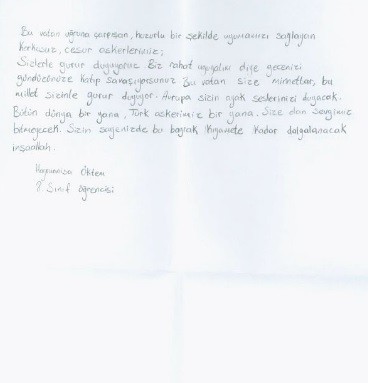 Bu vatan uğruna çarpışan, huzurlu bir şekilde uyumamızı sağlayan
korkusuz, cesur askerlerimiz;
Sizlerle gurur duyuyoruz. Biz rahat uyuyalım diye gecenizi
gündüzünüze katıp savaşıyorsunuz. Bu vatan size minnettar, bu
millet sizinle gurur duyuyor. Avrupa sizin ayak seslerinizi duyacak.
Bütün dünya bir yana, Türk askerimiz bir yana. Size olan sevgimiz
bitmeyecek. Sizin sayenizde bu bayrak kıyamete kadar dalgalanacak
inşaallah.
Ökten
7. Sınıf öğrencisi